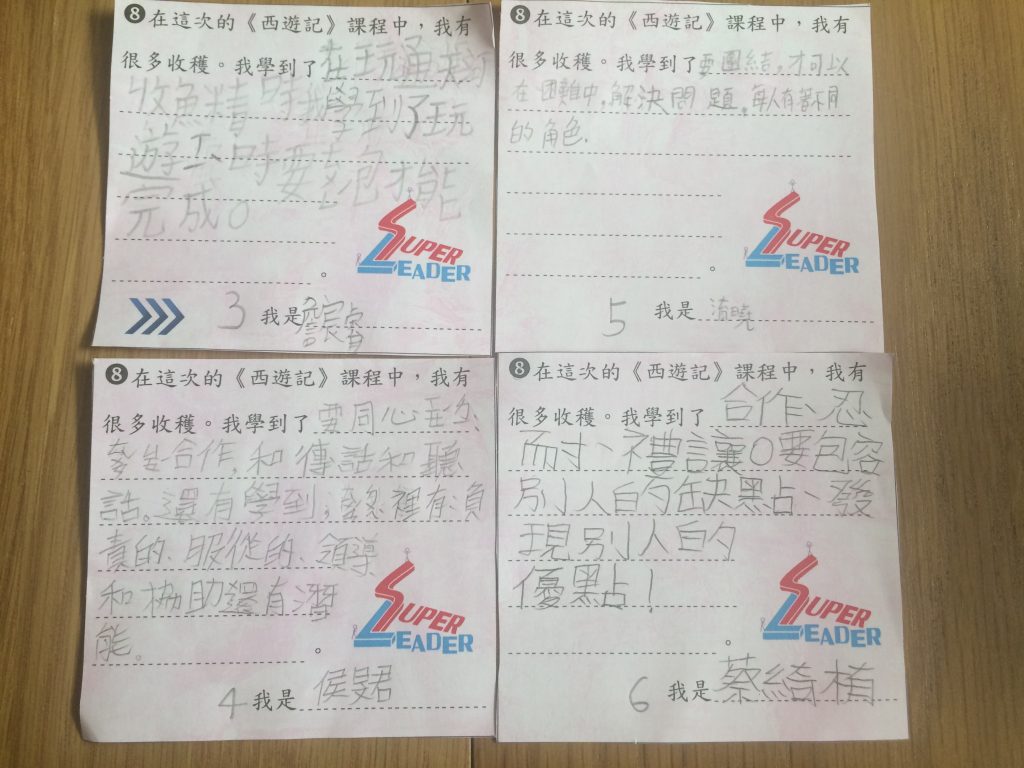 ❽在這次的《西遊記》課程中，我有
很多收穫。我學到了在玩通緝令
收魚精時我學到了玩
遊工、時要包才能
完成。
SUPER
LEADER
。
3 我是詹宸睿
❽在這次的《西遊記》課程中，我有
很多收穫。我學到了要團結，才可以
在困難中，解決問題，每人有著不同
的角色.
SUPER
LEADER
。
5 我是 清曉
❽在這次的《西遊記》課程中，我有
很多收穫。我學到了要同心
合作,和傳話和聽
話。還有學到；裡有:負
責的、服從的、領導
和協助還有潛
能。
SUPER
LEADER
。
4 我是 侯旻君
❽在這次的《西遊記》課程中，我有
很多收穫。我學到了合作、忍
耐、禮讓。要包容
別人的缺點、發
現別人的
優點！
SUPER
LEADER
。
6 我是蔡綺楨